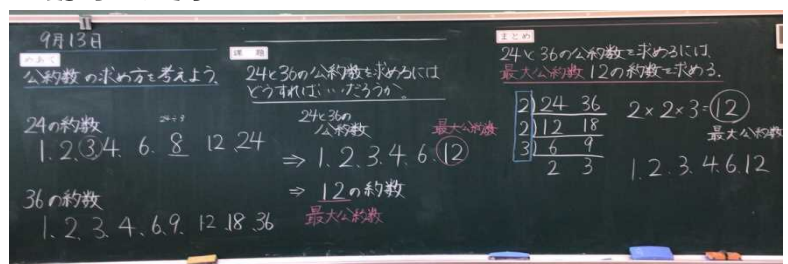 9月13日
めあて
公約数の求め方を考えよう。
24の約数
1.2.③4.6.8 12.24
36の約数
1.2.3.4.6.9.12.18.36
課題
24と36の公約数を求めるには
どうすれば…だろうか。
24と36の
公約数
最大公約数
⇒ 1.2.3.4.6.⑫
⇒ 12の約数
最大公約数
まとめ
24と36の公約数を求めるには、
最大公約数12の約数を求める。
2)24 36
2)12 18
3)6 9
2 3
2×2×3=⑫
最大公約数
1.2.3.4.6.12